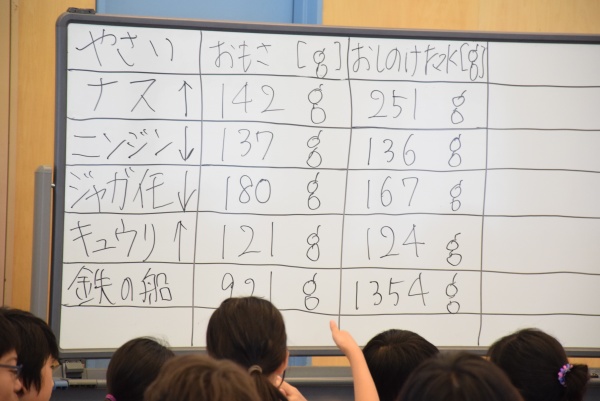 やさい おもさ [g] おしのけた水[g]
ナス ↑ 142 g 251 g
ニンジン ↓ 137 g 136 g
ジャガイモ ↓ 180 g 167 g
キュウリ ↑ 121 g 124 g
鉄の船 921 g 1354 g